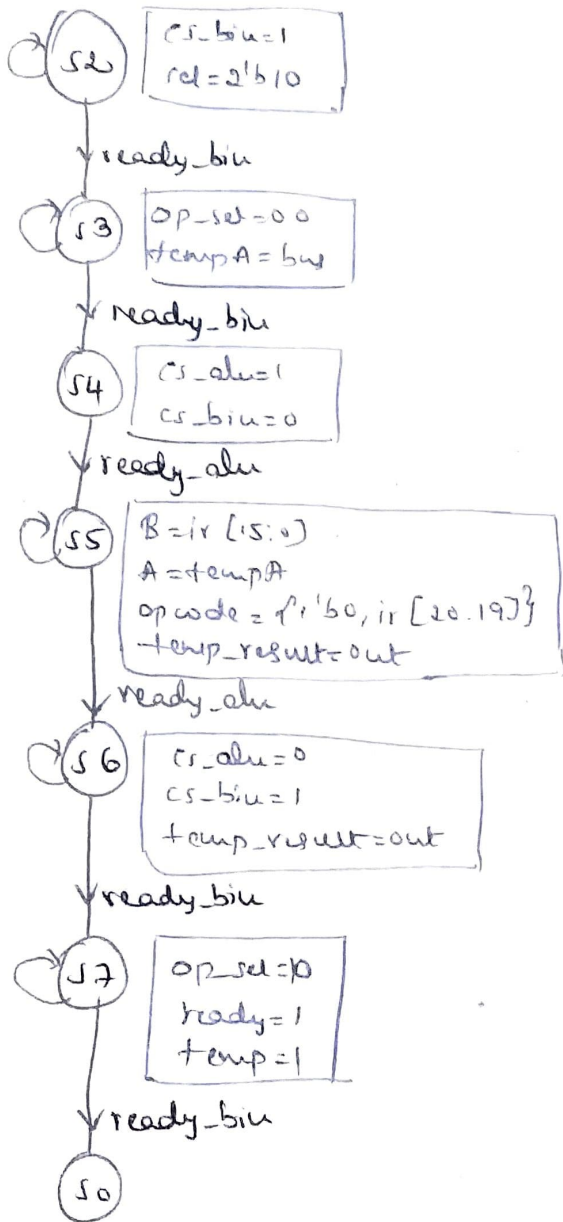 s2
cs_biu=1
sel=2'b10
ready_biu
s3
op_sel=00
tempA=bus
ready_biu
s4
cs_alu=1
cs_biu=0
ready_alu
s5
B=ir[15:0]
A=tempA
opcode={1'b0, ir[20:19]}
temp_result=out
ready_alu
s6
cs_alu=0
cs_biu=1
temp_result=out
ready_biu
s7
op_sel=10
ready=1
temp=1
ready_biu
s0